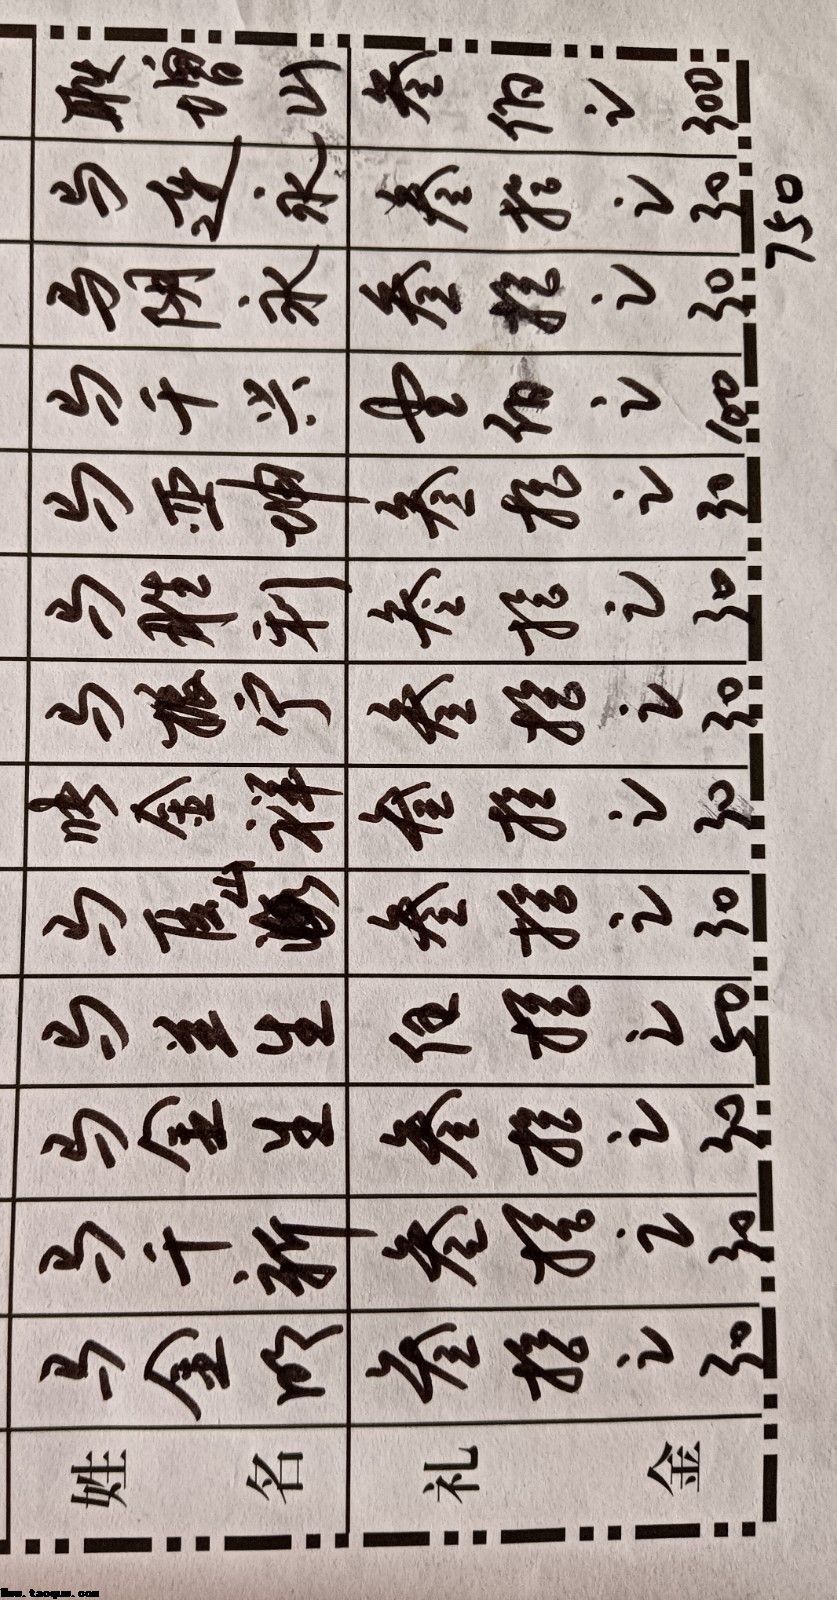 姓名 礼金
马金 叁拾元 30
马千新 叁拾元 30
马金生 叁拾元 30
马生 伍拾元 50
马山 叁拾元 30
金祥 叁拾元 30
马振宁 叁拾元 30
马胜利 叁拾元 30
马亚坤 叁拾元 30
马千兴 壹佰元 100
马永 叁拾元 30
马连永 叁拾元 30
增山 叁佰元 300
750
www.taoquw.com